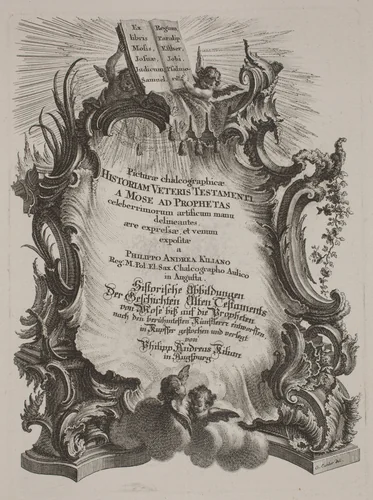 Ex Regum
libris Paralip.
Mosis, Esther,
Josuæ, Jobi,
Judicum, Psalmo-
Samuel.
Picturæ chalcographicæ
HISTORIAM VETERIS TESTAMENTI
A MOSE AD PROPHETAS
celeberrimorum artificum manu
delineantes,
ære expressæ, et venum
expositæ
a
PHILIPPO ANDREA KILIANO
Reg. M. Pol. El. Sax. Chalcographo Aulico
in Augusta.
Historische Abbildungen
Der Geschichten Alten Testaments
von Mose biß auf die Propheten
nach den berühmtesten Künstlern entworffen
in Kupffer gestochen und verlegt
von
Philipp Andreas Kilian
in Augsburg